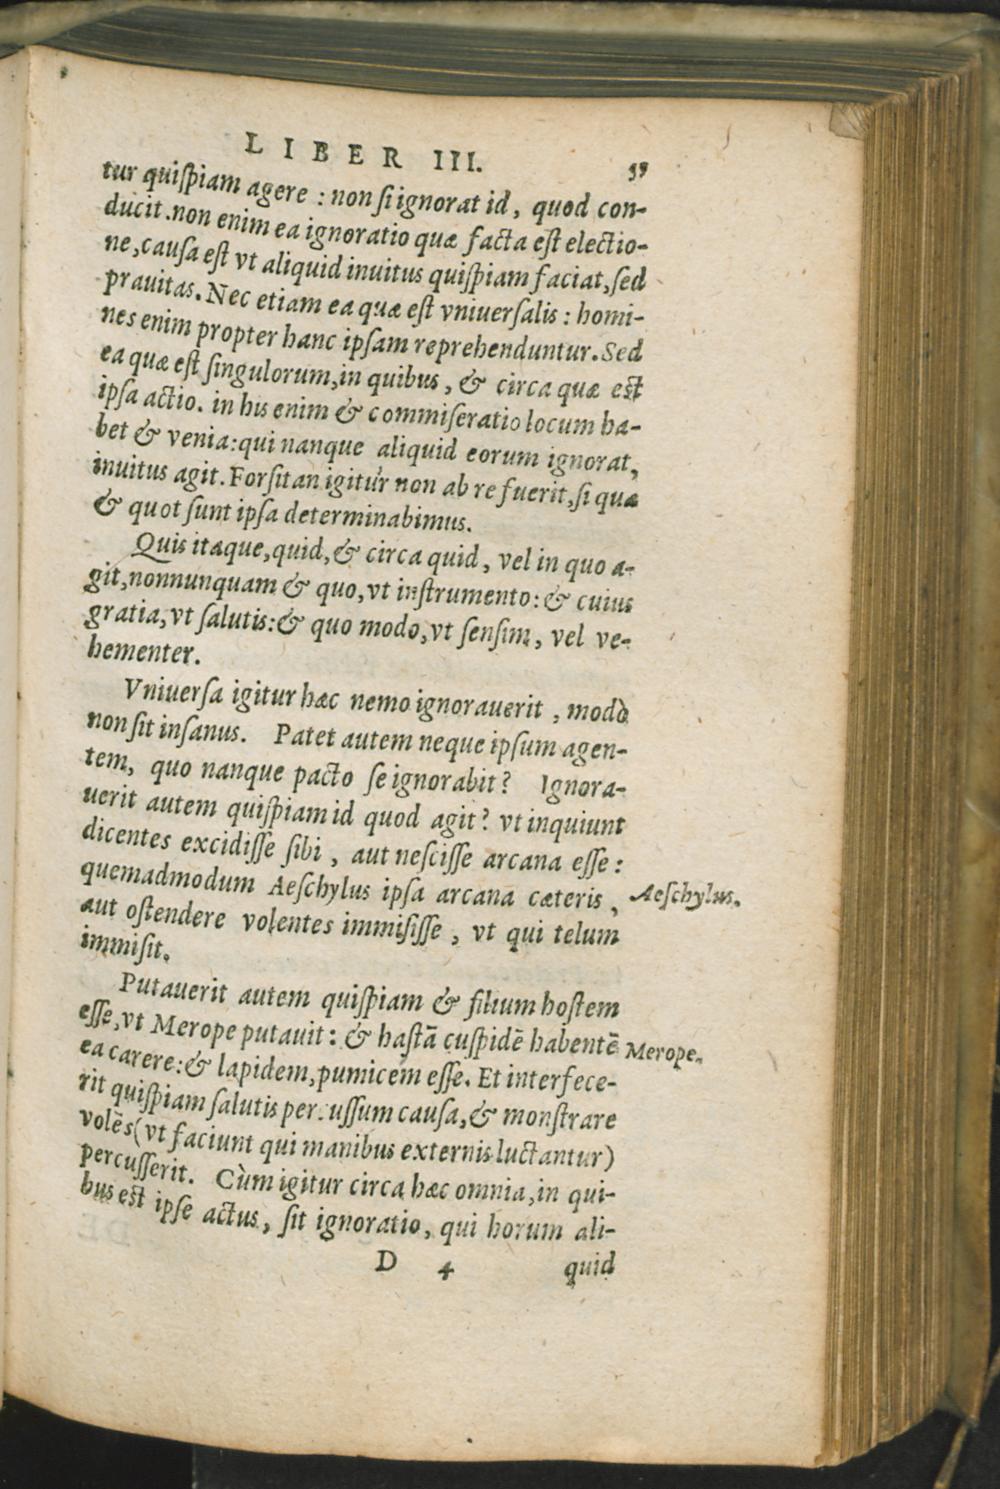 LIBER III. 55
tur quiſpiam agere : non ſi ignorat id, quod con-
ducit. non enim ea ignoratio quæ facta eſt electio-
ne, cauſa eſt vt aliquid inuitus quiſpiam faciat, ſed
prauitas. Nec etiam ea quæ eſt vniuerſalis : homi-
nes enim propter hanc ipſam reprehenduntur. Sed
ea quæ eſt ſingulorum, in quibus, & circa quæ eſt
ipſa actio. in his enim & commiſeratio locum ha-
bet & venia: qui nanque aliquid eorum ignorat,
inuitus agit. Forſitan igitur non ab re fuerit, ſi quæ
& quot ſunt ipſa determinabimus.
Quis itaque, quid, & circa quid, vel in quo a-
git, nonnunquam & quo, vt inſtrumento: & cuius
gratia, vt ſalutis: & quo modo, vt ſenſim, vel ve-
hementer.
Vniuerſa igitur hæc nemo ignorauerit, modò
non ſit inſanus. Patet autem neque ipſum agen-
tem, quo nanque pacto ſe ignorabit? Ignora-
uerit autem quiſpiam id quod agit? vt inquiunt
dicentes excidiſſe ſibi, aut neſciſſe arcana eſſe :
quemadmodum Aeſchylus ipſa arcana cæteris, Aeſchylus.
aut oſtendere volentes immiſiſſe, vt qui telum
immiſit.
Putauerit autem quiſpiam & filium hoſtem
eſſe, vt Merope putauit : & haſtā cuſpidē habentē Merope.
ea carere: & lapidem, pumicem eſſe. Et interfece-
rit quiſpiam ſalutis percuſſum cauſa, & monſtrare
volēs (vt faciunt qui manibus externis luctantur)
percuſſerit. Cùm igitur circa hæc omnia, in qui-
bus eſt ipſe actus, ſit ignoratio, qui horum ali-
D 4 quid